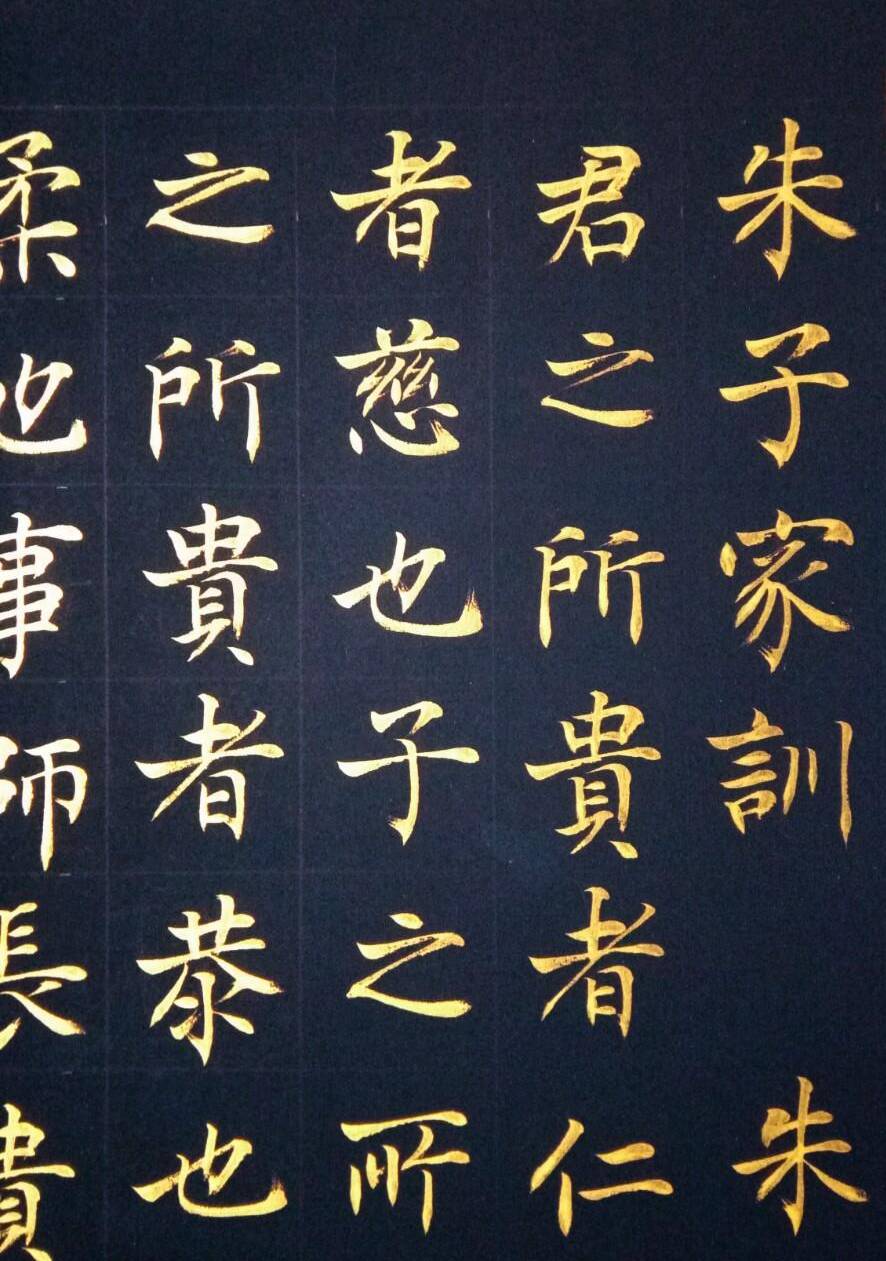 朱子家訓 朱
君之所貴者仁
者慈也子之所
之所貴者恭也
柔也事師長貴